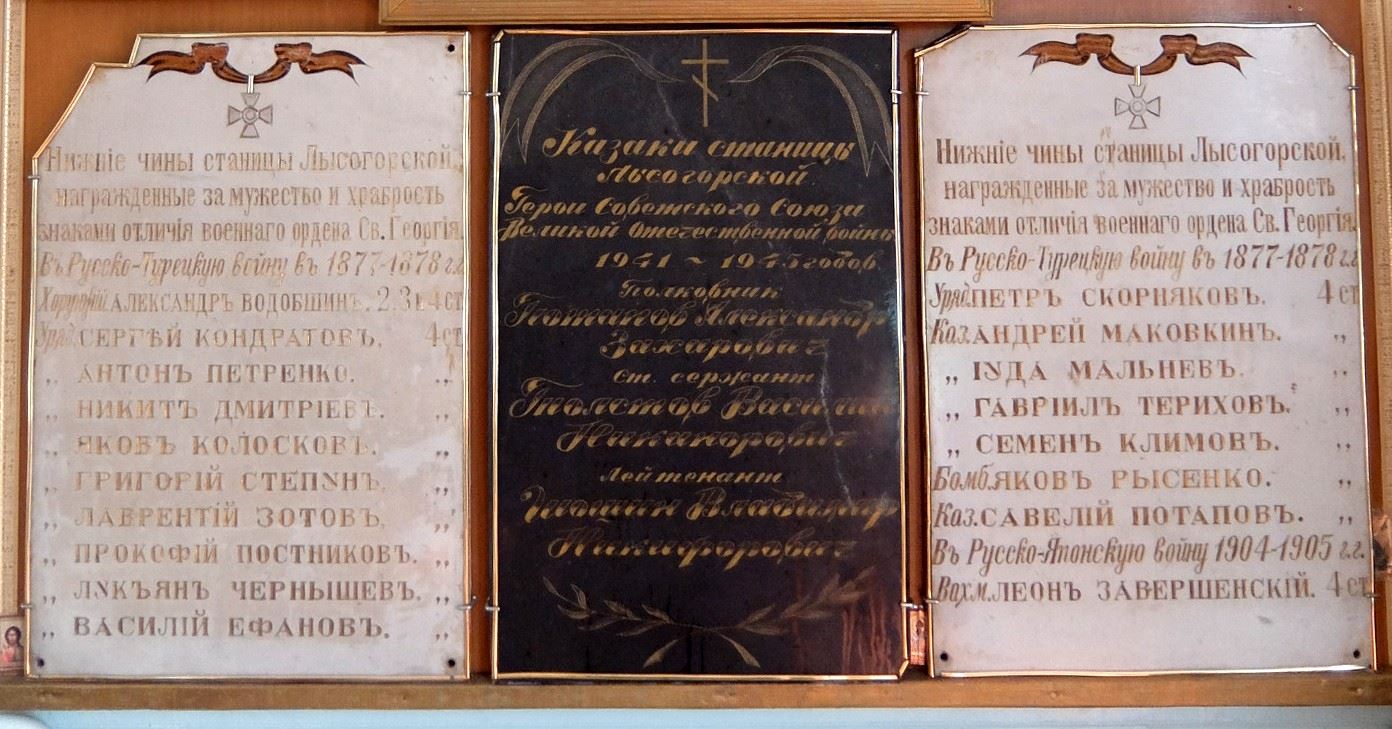 Нижніе чины станицы Лысогорской,
награжденные за мужество и храбрость
знаками отличія военнаго ордена Св. Георгія.
Въ Русско-Турецкую войну въ 1877-1878 г.г.
Хорунжій АЛЕКСАНДРЪ ВОДОБШИНЪ. 2.3 и 4 ст.
Уряд. СЕРГѢЙ КОНДРАТОВЪ. 4 ст.
„ АНТОНЪ ПЕТРЕНКО. „
„ НИКИТЪ ДМИТРІЕВЪ. „
„ ЯКОВЪ КОЛОСКОВЪ. „
„ ГРИГОРІЙ СТЕПУНЪ. „
„ ЛАВРЕНТІЙ ЗОТОВЪ. „
„ ПРОКОФІЙ ПОСТНИКОВЪ. „
„ ЛУКЪЯН ЧЕРНЫШЕВЪ. „
„ ВАСИЛІЙ ЕФАНОВЪ. „
Казаки станицы
Лысогорской
Герои Советского Союза
Великой Отечественной войны
1941 ~ 1945 годов
Полковник
Потапов Александр
Захарович
Ст. сержант
Толстов Василий
Никанорович
Лейтенант
Владимир
Никифорович
Нижніе чины станицы Лысогорской,
награжденные за мужество и храбрость
знаками отличія военнаго ордена Св. Георгія.
Въ Русско-Турецкую войну въ 1877-1878 г.г.
Уряд. ПЕТРЪ СКОРНЯКОВЪ. 4 ст.
Каз. АНДРЕЙ МАКОВКИНЪ. „
„ ІУДА МАЛЬНЕВЪ. „
„ ГАВРІИЛЪ ТЕРИХОВЪ. „
„ СЕМЕНЪ КЛИМОВЪ. „
Бомб. ЯКОВЪ РЫСЕНКО. „
Каз. САВЕЛІЙ ПОТАПОВЪ. „
Въ Русско-Японскую войну 1904-1905 г.г.
Вахм. ЛЕОН ЗАВЕРШЕНСКІЙ. 4 ст.